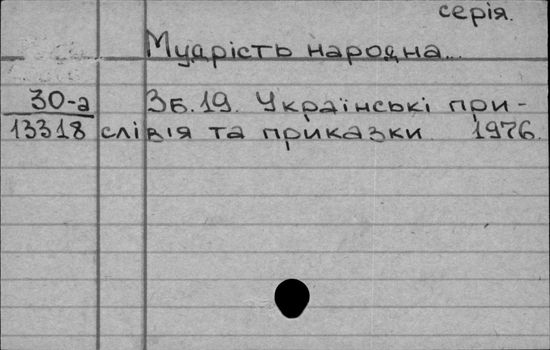 серія.
Мудрість народна...
30-а Зб. 19. Українські при-
13318 слівія та приказки 1976.